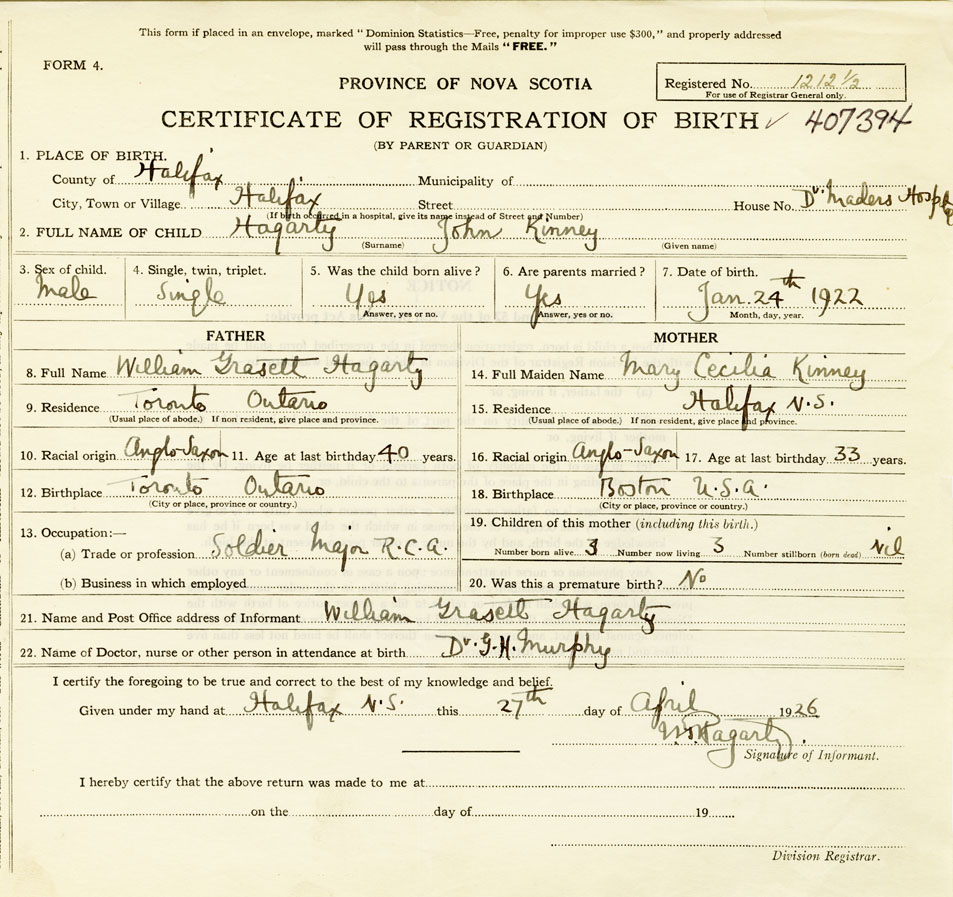 This form if placed in an envelope, marked " Dominion Statistics—Free, penalty for improper use $300," and properly addressed
will pass through the Mails "FREE."
FORM 4.
PROVINCE OF NOVA SCOTIA
Registered No. 1212½
For use of Registrar General only.
CERTIFICATE OF REGISTRATION OF BIRTH ✓ 407394
(BY PARENT OR GUARDIAN)
1. PLACE OF BIRTH.
County of Halifax Municipality of
City, Town or Village Halifax Street House No. Dr. Maders Hospital
(If birth occurred in a hospital, give its name instead of Street and Number)
2. FULL NAME OF CHILD Hagarty John Kinney
(Surname) (Given name)
3. Sex of child. 4. Single, twin, triplet. 5. Was the child born alive? 6. Are parents married? 7. Date of birth.
Male Single Yes Yes Jan. 24th 1922
Answer, yes or no. Answer, yes or no. Month, day, year.
FATHER
8. Full Name William Grasett Hagarty
9. Residence Toronto Ontario
(Usual place of abode.) If non resident, give place and province.
10. Racial origin Anglo-Saxon 11. Age at last birthday 40 years.
12. Birthplace Toronto Ontario
(City or place, province or country.)
13. Occupation:—
(a) Trade or profession Soldier Major R.C.A.
(b) Business in which employed
MOTHER
14. Full Maiden Name Mary Cecilia Kinney
15. Residence Halifax N.S.
(Usual place of abode.) If non resident, give place and province.
16. Racial origin Anglo-Saxon 17. Age at last birthday 33 years.
18. Birthplace Boston U.S.A.
(City or place, province or country.)
19. Children of this mother (including this birth.)
Number born alive 3 Number now living 3 Number stillborn (born dead) Nil
20. Was this a premature birth? No
21. Name and Post Office address of Informant William Grasett Hagarty
22. Name of Doctor, nurse or other person in attendance at birth Dr. G.H. Murphy
I certify the foregoing to be true and correct to the best of my knowledge and belief.
Given under my hand at Halifax N.S. this 27th day of April 1926
W.G. Hagarty.
Signature of Informant.
I hereby certify that the above return was made to me at
on the day of 19
Division Registrar.